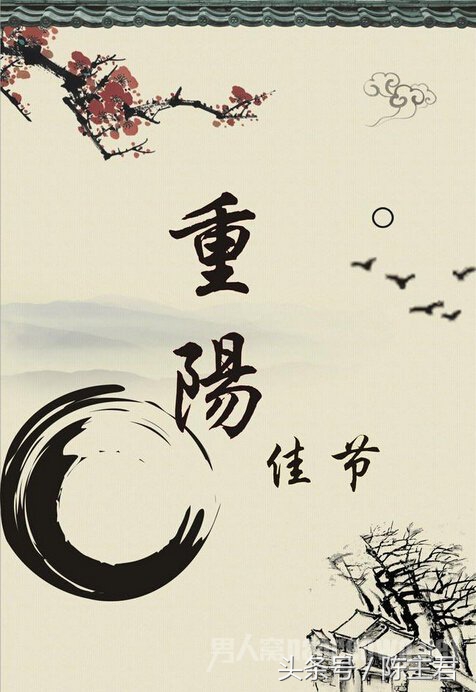 重
陽
佳节
男人窝
头条号 / 陈王君